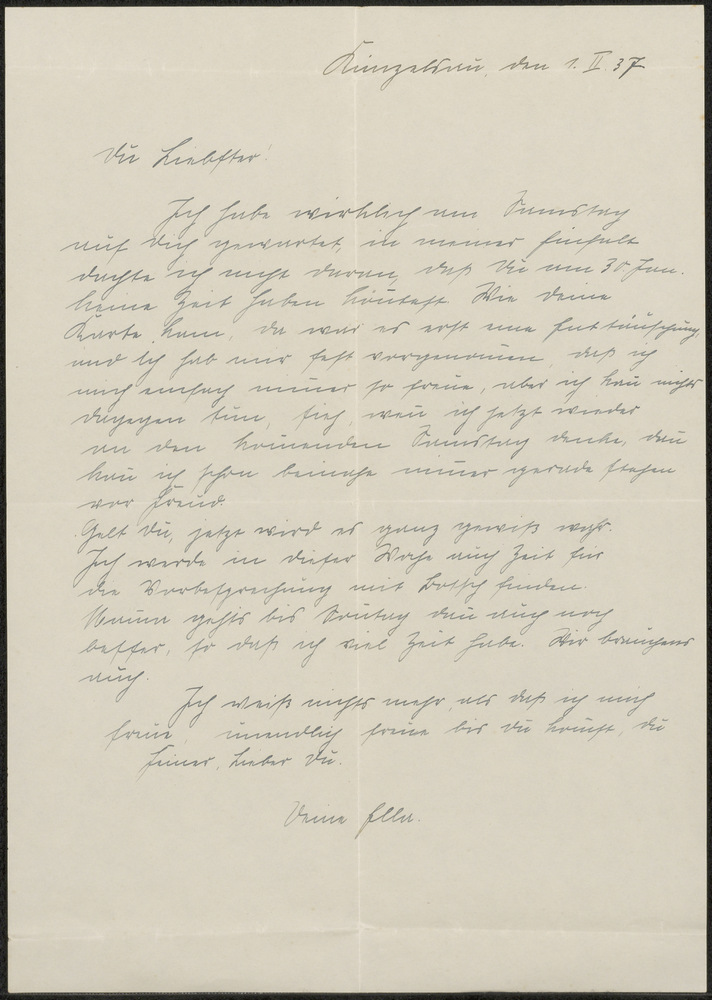 Künzelsau, den 1. II. 37
Du Liebster!
Ich habe wirklich am Samstag
auf Dich gewartet, in meiner Einfalt
dachte ich nicht daran, daß Du am 30. Jan.
keine Zeit haben könntest. Wie deine
Karte kam, da war es erst eine Enttäuschung,
und ich hab mir fest vorgenommen, daß ich
mich einfach nimmer so freue, aber ich kann nichts
dagegen tun, sieh, wenn ich jetzt wieder
an den kommenden Samstag denke, dann
kann ich schon beinahe nimmer gerade stehen
vor Freud.
Gelt Du, jetzt wird es ganz gewiß wahr.
Ich werde in dieser Woche auch Zeit für
die Vorbesprechung mit finden.
Mama gehts bis Sonntag dann auch noch
besser, so daß ich viel Zeit habe. Wir brauchens
auch.
Ich weiß nichts mehr, als daß ich mich
freue, unendlich freue bis du kommst, du
Feiner, Lieber Du.
Deine Ella.